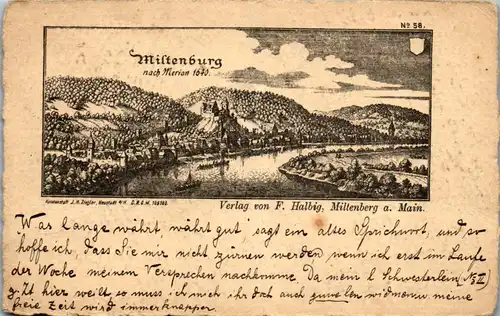 No 58.
Miltenburg
nach Merian 1640.
Kunstanstalt J. H. Ziegler, Neustadt a/H. D.R.G.M.
Verlag von F. Halbig, Miltenberg a. Main.
Was lange währt, währt gut" sagt ein altes Sprichwort, und so
hoffe ich, dass Sie mir nicht zürnen werden wenn ich erst im Laufe
der Woche meinem Versprechen nachkomme Da mein l Schwesterlein No II
z. Zt hier weilt so muss ich mich ihr doch auch zuweilen widmen u. meine
freie Zeit wird immer knapper.